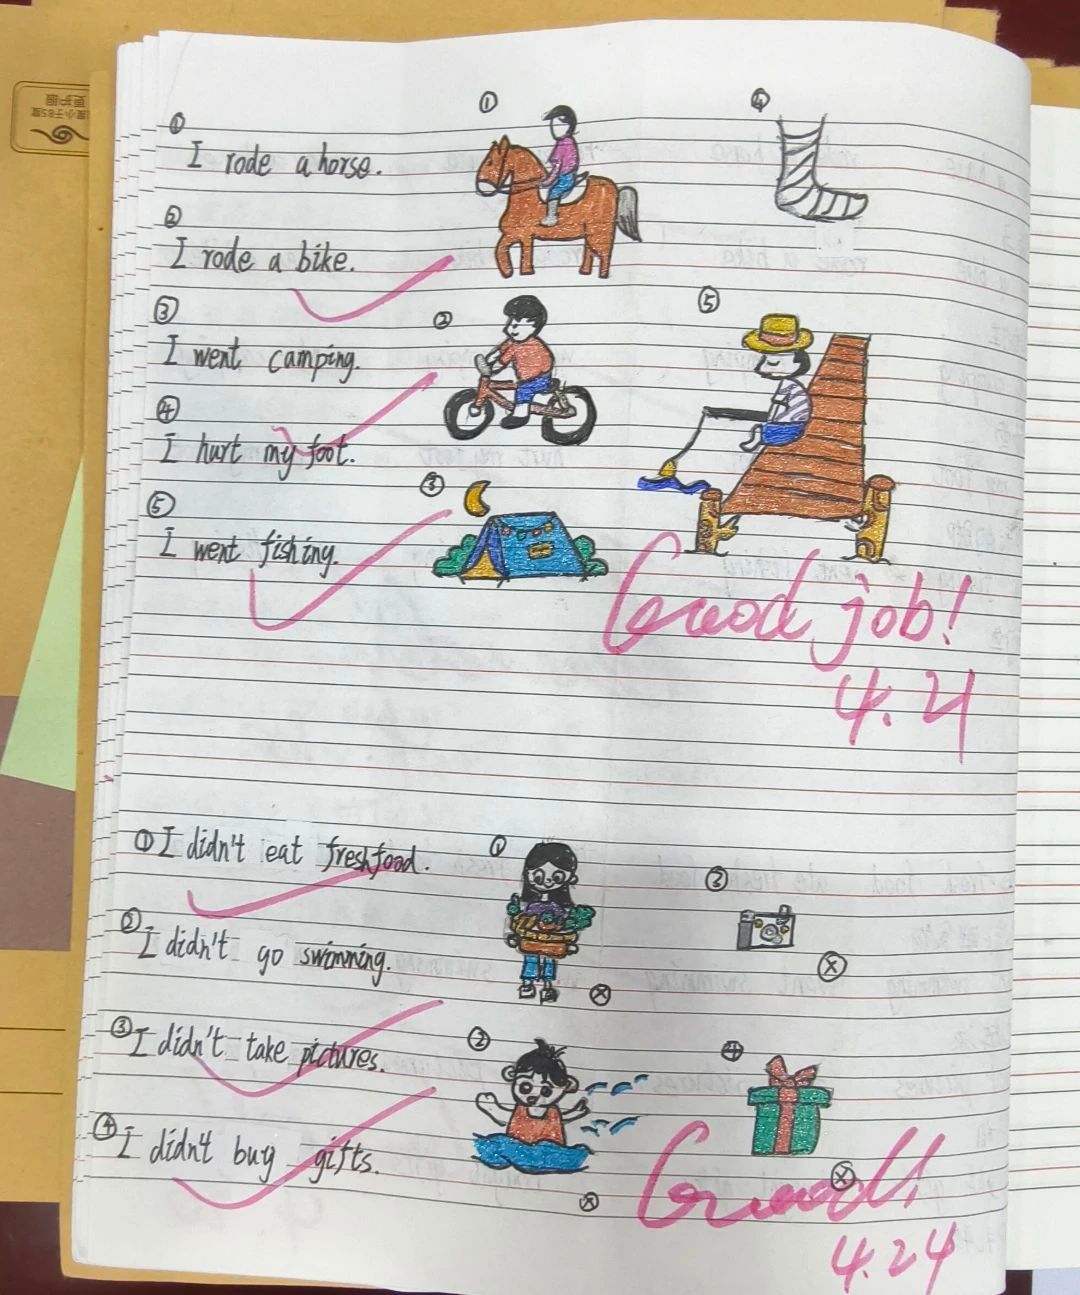 ①
I rode a horse.
②
I rode a bike.
③
I went camping.
④
I hurt my foot.
⑤
I went fishing.
①
④
②
⑤
③
Good job!
4.21
① I didn't eat fresh food.
②
I didn't go swimming.
③ I didn't take pictures.
④ I didn't buy gifts.
①
③
②
④
Good!
4.24